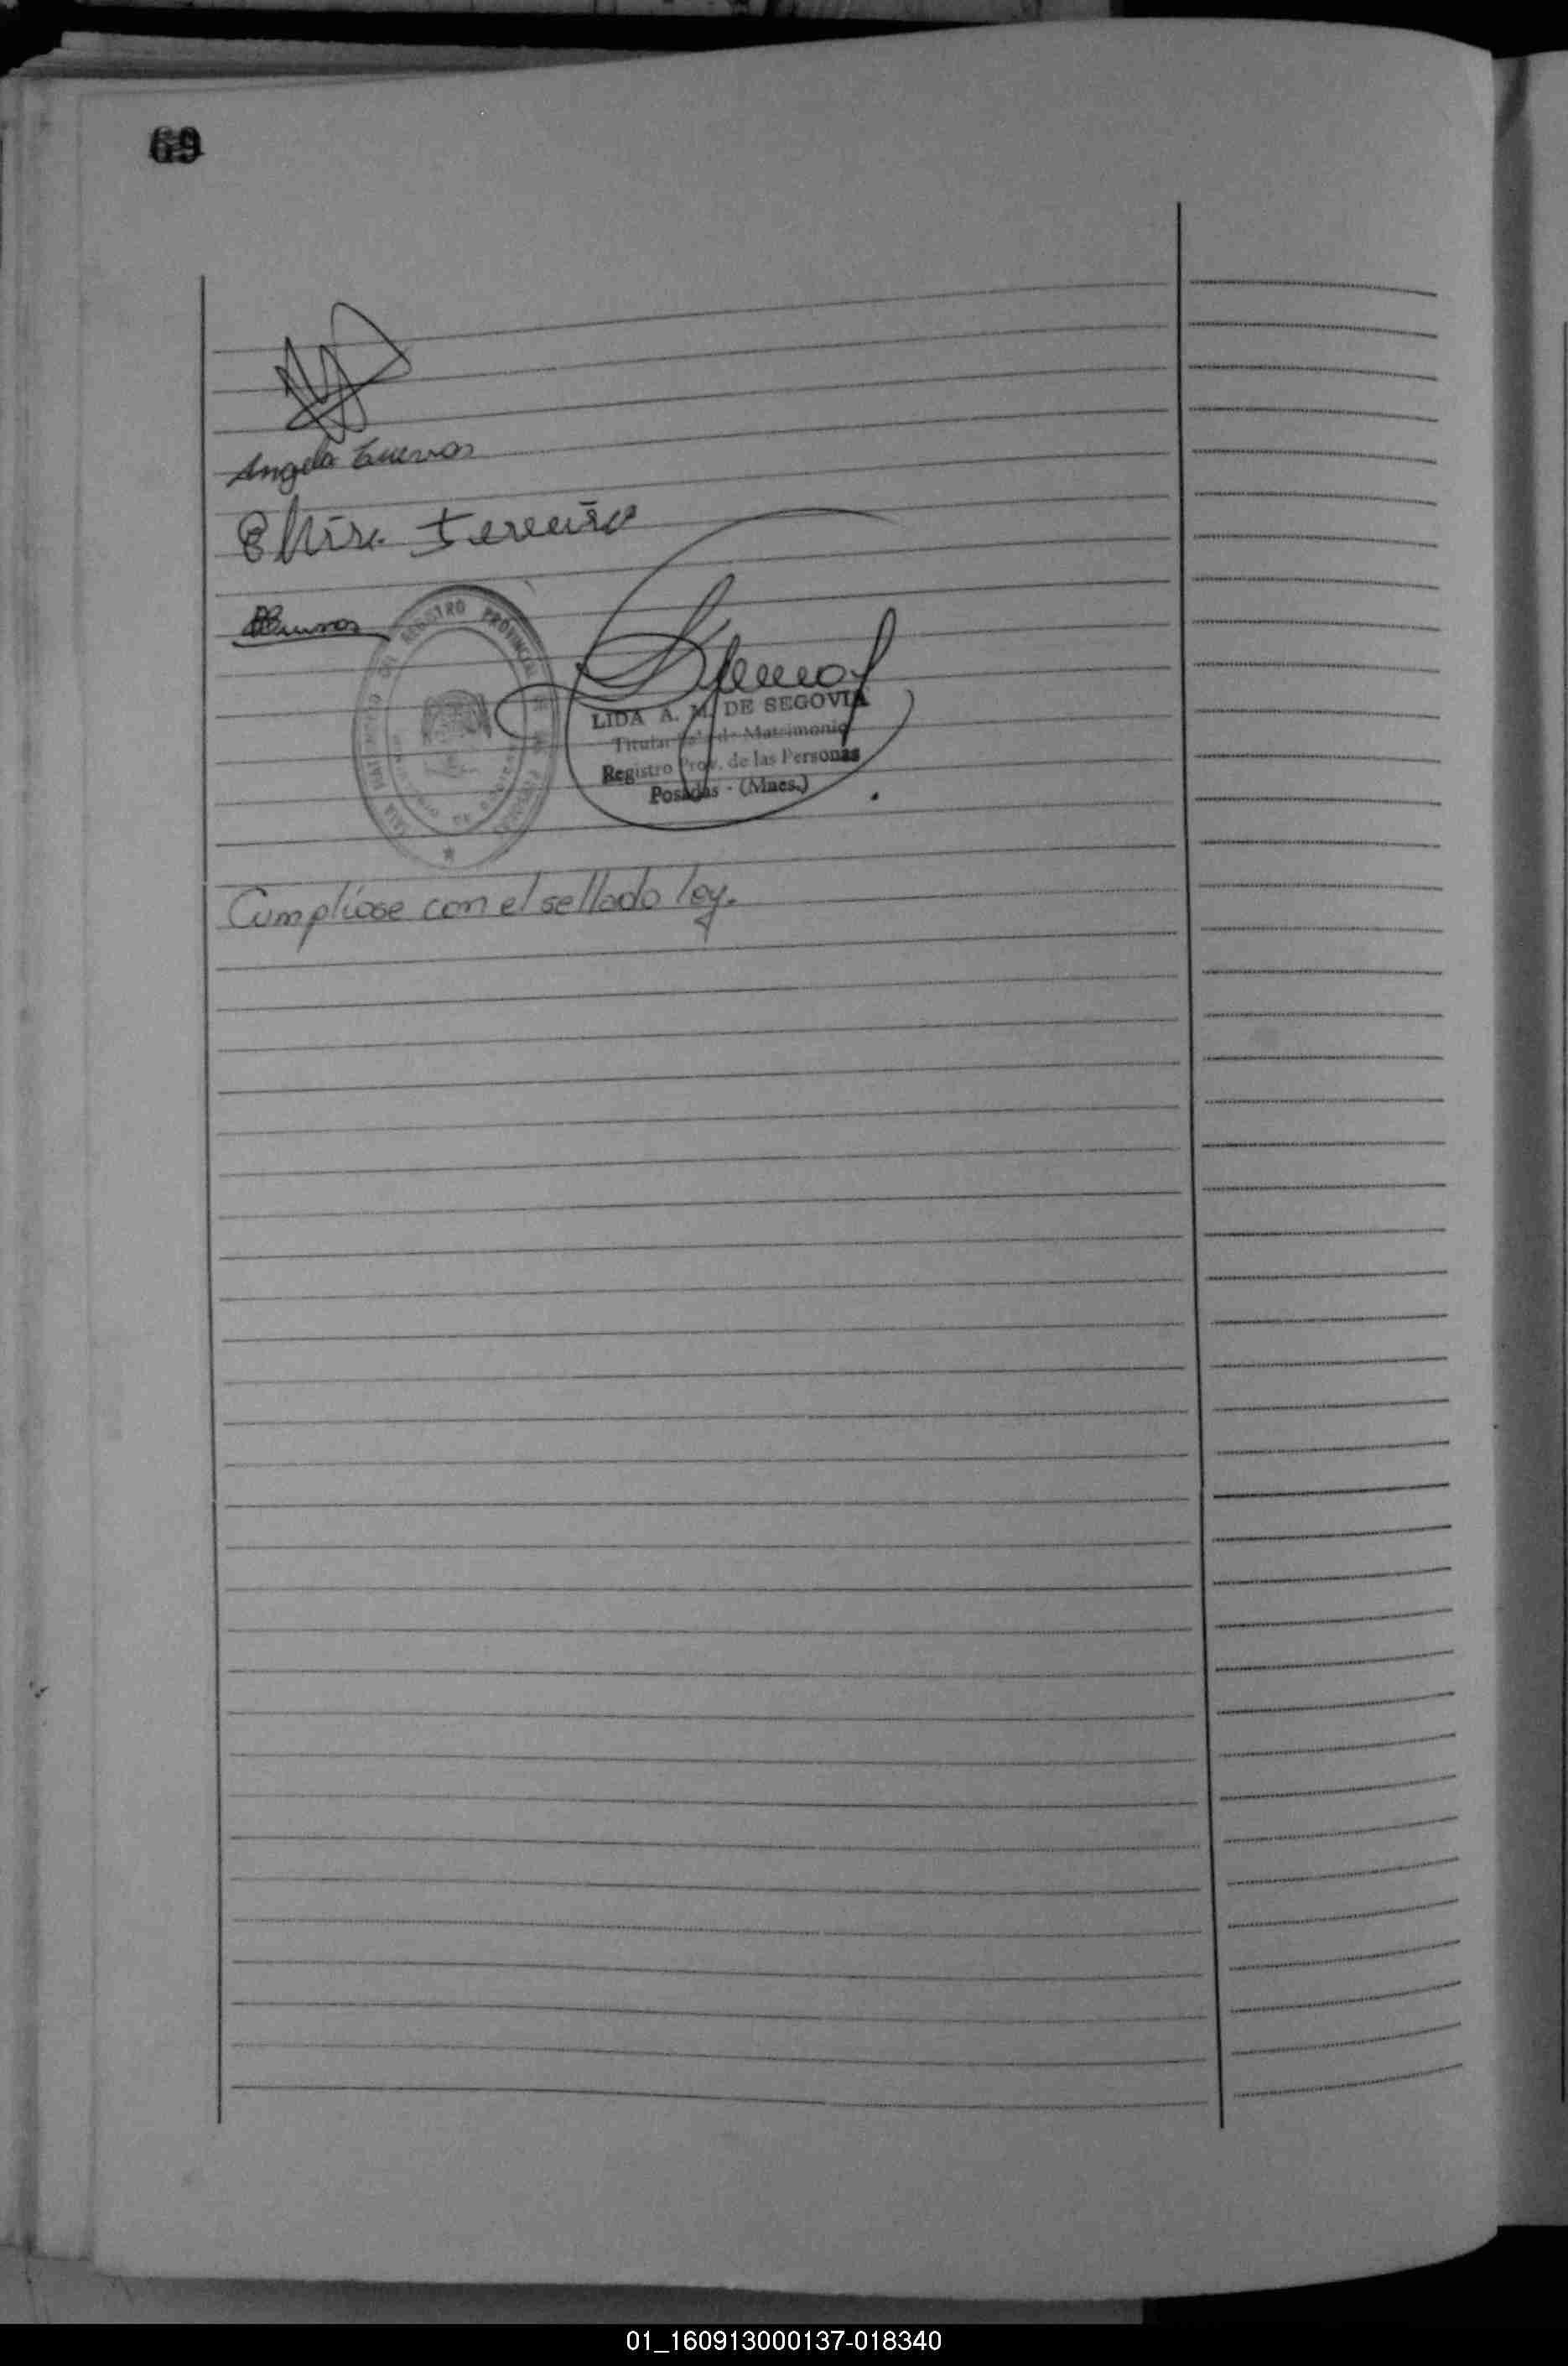 69
Angela Cuevas
Elvira Fereira
REGISTRO PROVINCIAL DE LAS PERSONAS
LIDA A. M. DE SEGOVIA
Titular de Matrimonio
Registro Prov. de las Personas
Posadas - (Mnes.)
Cumpliose con el sellado ley.
01_160913000137-018340